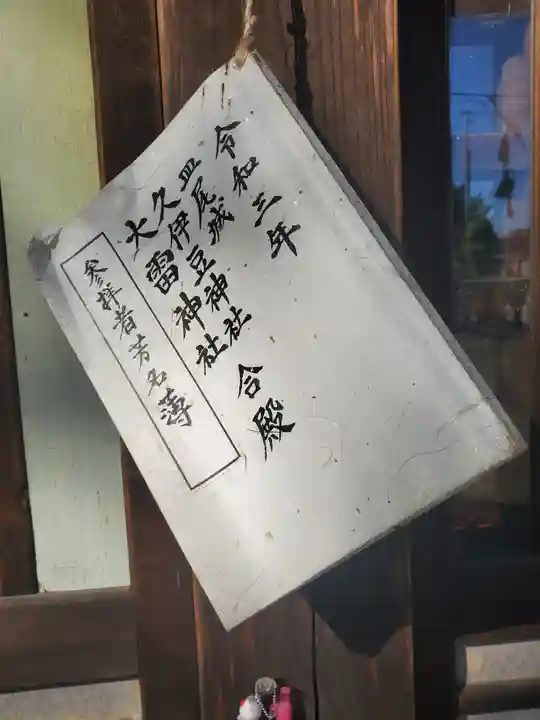 令和三年
皿尾城
久伊豆神社
大雷神社
合殿
参拝者芳名簿